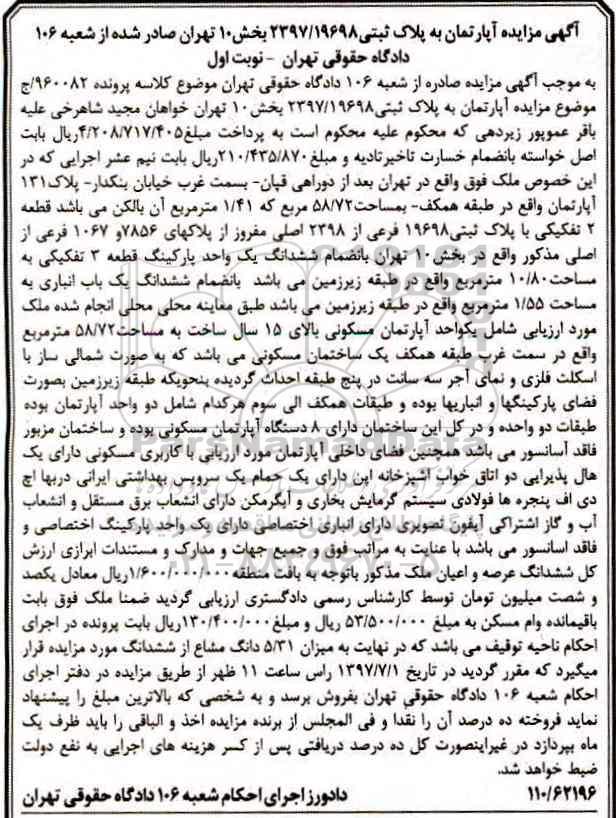 آگهی مزایده آپارتمان به پلاک ثبتی۲۳۹۷/۱۹۶۹۸ بخش۱۰ تهران صادر شده از شعبه ۱۰۶
دادگاه حقوقی تهران - نوبت اول
به موجب آگهی مزایده صادره از شعبه ۱۰۶ دادگاه حقوقی تهران موضوع کلاسه پرونده ۹۶۰۰۸۲/ج
موضوع مزایده آپارتمان به پلاک ثبتی۲۳۹۷/۱۹۶۹۸ بخش۱۰ تهران خواهان مجید شاهرخی علیه
باقر عموپور زیردهی که محکوم علیه محکوم است به پرداخت مبلغ۴/۲۰۸/۷۱۷/۴۰۵ریال بابت
اصل خواسته بانضمام خسارت تاخیرتادیه و مبلغ۲۱۰/۴۳۵/۸۷۰ریال بابت نیم عشر اجرایی که در
این خصوص ملک فوق واقع در تهران بعد از دوراهی قپان- بسمت غرب خیابان بنکدار- پلاک۱۳۱
آپارتمان واقع در طبقه همکف- بمساحت۵۸/۷۲ مربع که ۱/۴۱ مترمربع آن بالکن می باشد قطعه
۲ تفکیکی با پلاک ثبتی۱۹۶۹۸ فرعی از ۲۳۹۸ اصلی مفروز از پلاکهای ۷۸۵۶و ۱۰۶۷ فرعی از
اصلی مذکور واقع در بخش۱۰ تهران بانضمام ششدانگ یک واحد پارکینگ قطعه ۳ تفکیکی به
مساحت۱۰/۸۰ مترمربع واقع در طبقه زیرزمین می باشد بانضمام ششدانگ یک باب انباری به
مساحت ۱/۵۵ مترمربع واقع در طبقه زیرزمین می باشد طبق معاینه محلی محلی انجام شده ملک
مورد ارزیابی شامل یکواحد آپارتمان مسکونی بالای ۱۵ سال ساخت به مساحت۵۸/۷۲ مترمربع
واقع در سمت غرب طبقه همکف یک ساختمان مسکونی می باشد که به صورت شمالی ساز با
اسکلت فلزی و نمای آجر سه سانت در پنج طبقه احداث گردیده بنحویکه طبقه زیرزمین بصورت
فضای پارکینگها و انباریها بوده و طبقات همکف الی سوم هرکدام شامل دو واحد آپارتمان بوده
طبقات دو واحده و در کل این ساختمان دارای ۸ دستگاه آپارتمان مسکونی بوده و ساختمان مزبور
فاقد آسانسور می باشد همچنین فضای داخلی آپارتمان مورد ارزیابی با کاربری مسکونی دارای یک
هال پذیرایی دو اتاق خواب آشپزخانه اپن دارای یک حمام یک سرویس بهداشتی ایرانی دربها اچ
دی اف پنجره ها فولادی سیستم گرمایش بخاری و آبگرمکن دارای انشعاب برق مستقل و انشعاب
آب و گاز اشتراکی آیفون تصویری دارای انباری اختصاصی دارای یک واحد پارکینگ اختصاصی و
فاقد اسانسور می باشد با عنایت به مراتب فوق و جمیع جهات و مدارک و مستندات ابرازی ارزش
کل ششدانگ عرصه و اعیان ملک مذکور باتوجه به بافت منطقه۱/۶۰۰/۰۰۰/۰۰۰ریال معادل یکصد
و شصت میلیون تومان توسط کارشناس رسمی دادگستری ارزیابی گردید ضمنا ملک فوق بابت
باقیمانده وام مسکن به مبلغ ۵۳/۵۰۰/۰۰۰ ریال و مبلغ۱۳۰/۴۰۰/۰۰۰ریال بابت پرونده در اجرای
احکام ناحیه توقیف می باشد که در نهایت به میزان ۵/۳۱ دانگ مشاع از ششدانگ مورد مزایده قرار
میگیرد که مقرر گردید در تاریخ ۱۳۹۷/۷/۱ راس ساعت ۱۱ ظهر از طریق مزایده در دفتر اجرای
احکام شعبه ۱۰۶ دادگاه حقوقی تهران بفروش برسد و به شخصی که بالاترین مبلغ را پیشنهاد
نماید فروخته ده درصد آن را نقدا و فی المجلس از برنده مزایده اخذ و الباقی را باید ظرف یک
ماه بپردازد در غیراینصورت کل ده درصد دریافتی پس از کسر هزینه های اجرایی به نفع دولت
ضبط خواهد شد.
۱۱۰/۶۲۱۹۶ دادورز اجرای احکام شعبه ۱۰۶ دادگاه حقوقی تهران
ParsNamadData
۰۲۱-۸۸۳۴۹۶۷۰-۵